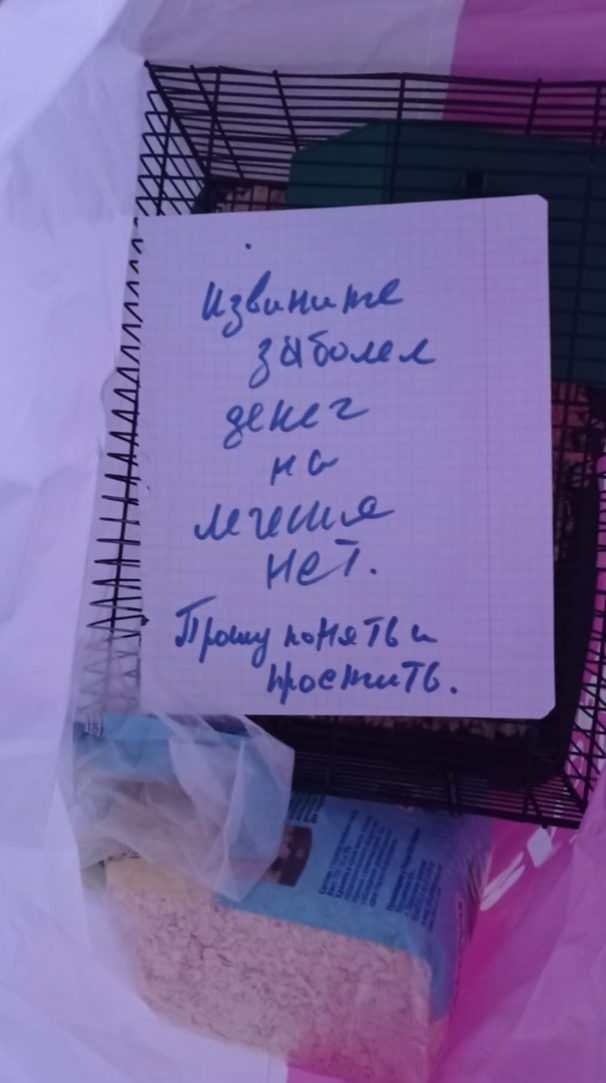 извините
заболел
денег
на
лечения
нет.
Прошу понять и
простить.